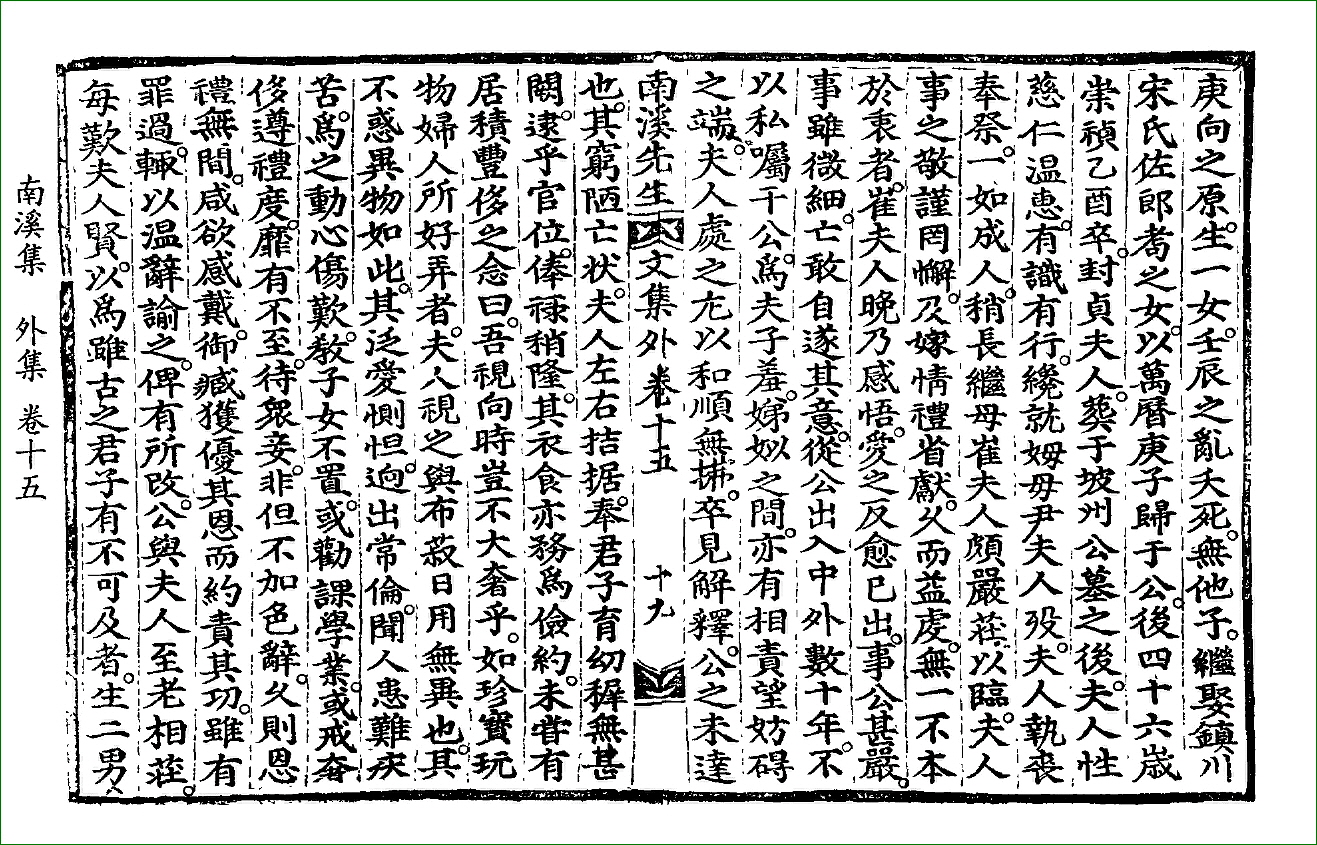 庚向之原。生一女。壬辰之亂夭死。無他子。繼娶鎭川
宋氏佐郎耇之女。以萬曆庚子歸于公。後四十六歲
崇禎乙酉卒。封貞夫人。葬于坡州公墓之後。夫人性
慈仁温惠。有識有行。纔就姆。母尹夫人歿。夫人執喪
奉祭。一如成人。稍長繼母崔夫人頗嚴莊。以臨。夫人
事之敬謹罔懈。及嫁情禮省獻。久而益虔。無一不本
於衷者。崔夫人晩乃感悟。愛之反愈已出。事公甚嚴。
事雖微細。亡敢自遂其意。從公出入中外數十年。不
以私囑干公。爲夫子羞。娣姒之間。亦有相責望妨碍
之端。夫人處之尤以和順無拂。卒見解釋。公之未達
南溪先生文集外 卷十五 十九
也。其窮陋亡状。夫人左右拮据。奉君子育幼穉無甚
闕。逮乎官位。俸祿稍隆。其衣食亦務爲儉約。未甞有
居積豐侈之念曰。吾視向時豈不大奢乎。如珍寳玩
物婦人所好弄者。夫人視之與布菽日用無異也。其
不惑異物如此。其泛愛惻怛。逈出常倫。聞人患難疾
苦。爲之動心傷歎。敎子女不置。或勸課學業。或戒奢
侈遵禮度。靡有不至。待衆妾。非但不加色辭。久則恩
禮無間。咸欲感戴。御臧獲優其恩而約責其功。雖有
罪過。輒以温辭諭之。俾有所改。公與夫人至老相莊。
每歎夫人賢。以爲雖古之君子有不可及者。生二男。
南溪集 外集 卷十五